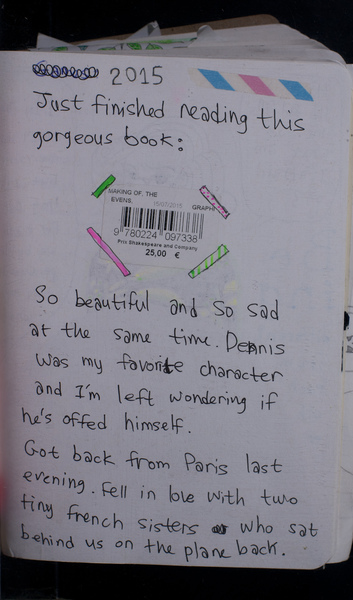 2015
Just finished reading this
gorgeous book:
MAKING OF, THE
EVENS. 16/07/2015 GRAPH
9 780224 097338
Prix Shakespeare and Company
25,00 €
So beautiful and so sad
at the same time. Dennis
was my favorite character
and I'm left wondering if
he's offed himself.
Got back from Paris last
evening. Fell in love with two
tiny french sisters who sat
behind us on the plane back.